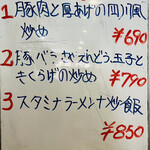 1 豚肉と厚あげの四川風
炒め
¥690
2 豚バラ、さやえんどう、玉子と
きくらげの炒め
¥790
3 スタミナラーメンナ炒飯
¥850